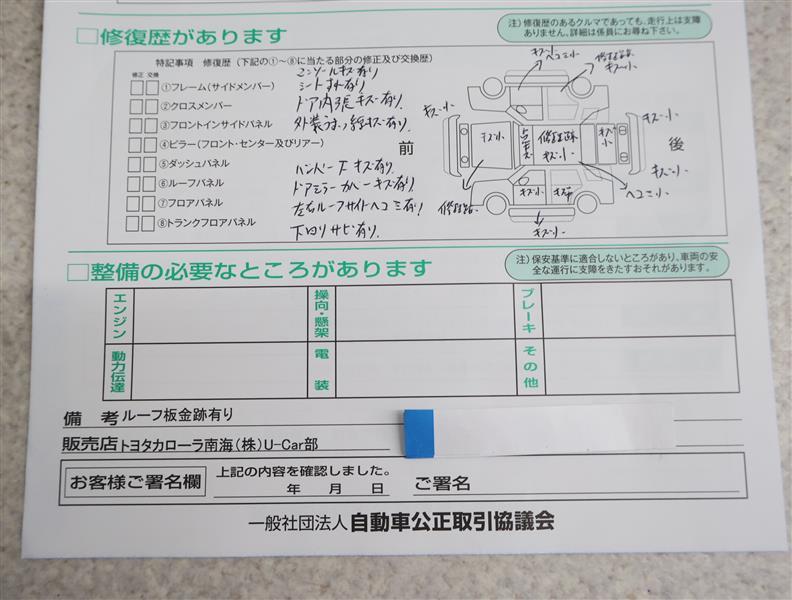 注）修復歴のあるクルマであっても、走行上は支障
ありません。詳細は係員にお尋ね下さい。
□修復歴があります
特記事項 修復歴（下記の①～⑧に当たる部分の修正及び交換歴）
修正 交換
コンソールキズ有り
①フレーム（サイドメンバー）
シートすれ有り
②クロスメンバー
ドア内張キズ有り
③フロントインサイドパネル
④ピラー（フロント・センター及びリアー）
⑤ダッシュパネル
バンパー下キズ有り
⑥ルーフパネル
ドアミラーカバーキズ有り
⑦フロアパネル
左右ルーフサイドヘコミ有り
⑧トランクフロアパネル
下回りサビ有り
前
後
キズ小
ヘコミ小
修理跡
キズ小
キズ小
キズ小
キズ小
修理跡
キズ小
キズ小
キズ小
キズ小
キズ小
ヘコミ小
修理跡
キズ小
□整備の必要なところがあります
注）保安基準に適合しないところがあり、車両の安
全な運行に支障をきたすおそれがあります。
エンジン
操向・懸架
ブレーキ
動力伝達
電装
その他
備考 ルーフ板金跡有り
販売店 トヨタカローラ南海（株）U-Car部
お客様ご署名欄
上記の内容を確認しました。
年 月 日
ご署名
一般社団法人 自動車公正取引協議会